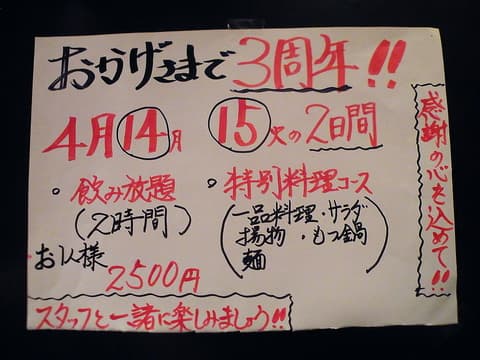 おかげさまで3周年!!
4月14月 15火の2日間
。飲み放題
(2時間)
。特別料理コース
(一品料理・サラダ
揚物・もつ鍋
麺)
お1人様
2500円
スタッフと一諸に楽しみましょう!!
感謝の心を込めて!!